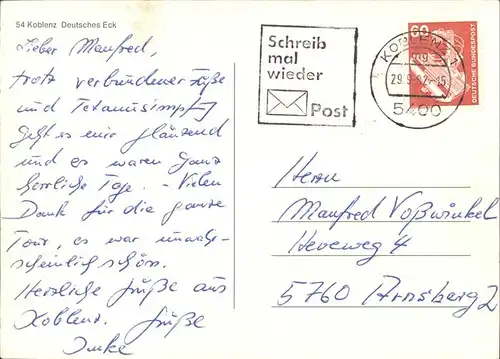 54 Koblenz Deutsches Eck
Lieber Manfred,
trotz verbundener Füße
und Tetanusimpfung
geht es mir glänzend
und es waren ganz
herrliche Tage. - Vielen
Dank für die ganze
Tour, es war unwahr-
scheinlich schön.
Herzliche Grüße aus
Koblenz. Grüße
Imke
Schreib
mal
wieder
Post
KOBLENZ 1
29.9.82-15
5400
60
DEUTSCHE BUNDESPOST
Herrn
Manfred Voßwinkel
Heveweg 4
5760 Arnsberg 2